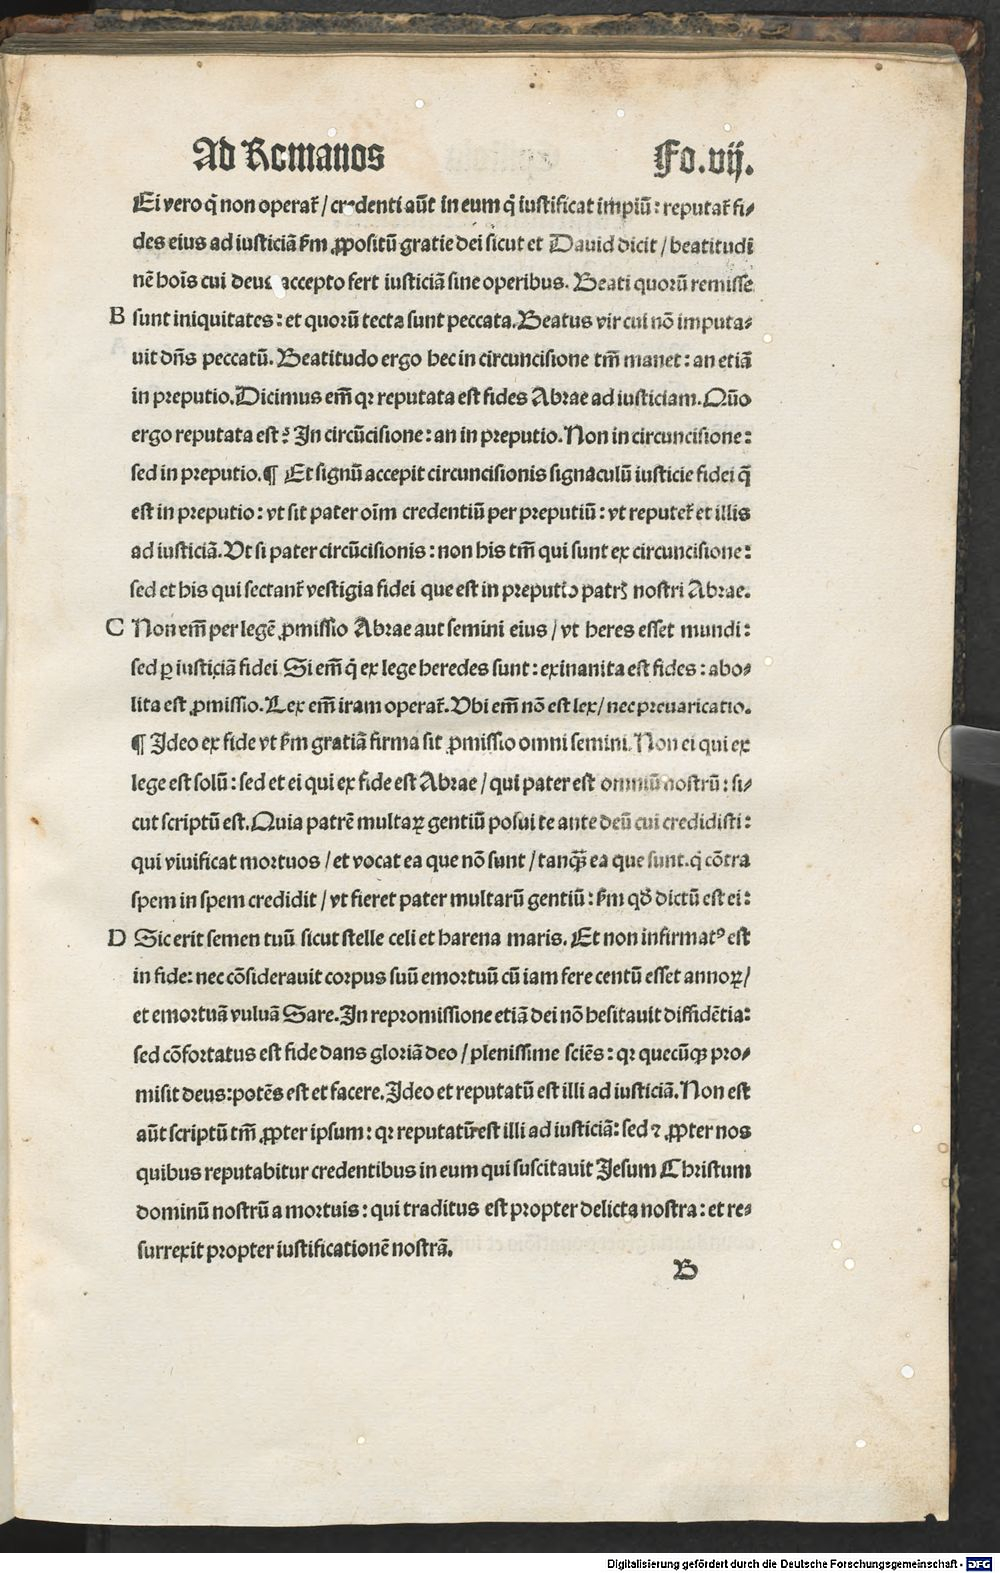 Ad Romanos Fo.vij.
Ei vero q̄ non operat᷑ / credenti aūt in eum q̄ iustificat impiū : reputat᷑ fi⸗
des eius ad iusticiā ẜm ꝓpositū gratie dei sicut et Dauid dicit / beatitudi
nē hoīs cui deus accepto fert iusticiā sine operibus. Beati quorū remisse
B sunt iniquitates : et quorū tecta sunt peccata. Beatus vir cui nō imputa⸗
uit dn̄s peccatū. Beatitudo ergo hec in circuncisione tm̄ manet : an etiā
in preputio. Dicimus em̄ qꝛ reputata est fides Abrae ad iusticiam. Quō
ergo reputata est ? In circūcisione : an in preputio. Non in circuncisione :
sed in preputio. ¶ Et signū accepit circuncisionis signaculū iusticie fidei q̄
est in preputio : vt sit pater oīm credentiū per preputiū : vt reputet᷑ et illis
ad iusticiā. Vt si pater circūcisionis : non his tm̄ qui sunt ex circuncisione :
sed et his qui sectant᷑ vestigia fidei que est in preputio patrꝭ nostri Abrae.
C Non em̄ per legē ꝓmissio Abrae aut semini eius / vt heres esset mundi :
sed ꝑ iusticiā fidei Si em̄ q̄ ex lege heredes sunt : exinanita est fides : abo⸗
lita est ꝓmissio. Lex em̄ iram operat᷑. Vbi em̄ nō est lex / nec preuaricatio.
¶ Ideo ex fide vt ẜm gratiā firma sit ꝓmissio omni semini. Non ei qui ex
lege est solū : sed et ei qui ex fide est Abrae / qui pater est omniū nostrū : si⸗
cut scriptū est. Quia patrē multaꝝ gentiū posui te ante deū cui credidisti :
qui viuificat mortuos / et vocat ea que nō sunt / tanqȝ̄ ea que sunt. q̄ cōtra
spem in spem credidit / vt fieret pater multarū gentiū : ẜm qd̓ dictū est ei :
D Sic erit semen tuū sicut stelle celi et harena maris. Et non infirmatꝰ est
in fide : nec cōsiderauit corpus suū emortuū cū iam fere centū esset annoꝝ /
et emortuā vuluā Sare. In repromissione etiā dei nō hesitauit diffidētia :
sed cōfortatus est fide dans gloriā deo / plenissime sciēs : qꝛ quecūqȝ pro⸗
misit deus : potēs est et facere. Ideo et reputatū est illi ad iusticiā. Non est
aūt scriptū tm̄ ꝓpter ipsum : qꝛ reputatū est illi ad iusticiā : sed ⁊ ꝓpter nos
quibus reputabitur credentibus in eum qui suscitauit Jesum Christum
dominū nostrū a mortuis : qui traditus est propter delicta nostra : et re⸗
surrexit propter iustificationē nostrā.
B
Digitalisierung gefördert durch die Deutsche Forschungsgemeinschaft - DFG